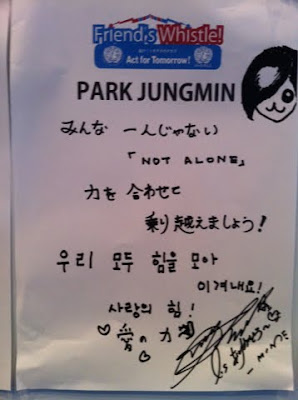 Friend,s Whistle!
Act for Tomorrow!
PARK JUNGMIN
みんな 一人じゃない
「NOT ALONE」
力を 合わせて
乗り越えましょう!
우리 모두 힘을 모아
이겨내요!
사랑의 힘!
愛の力